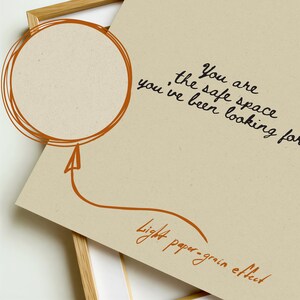 You are
the safe space
you've been looking for
Light paper-grain effect